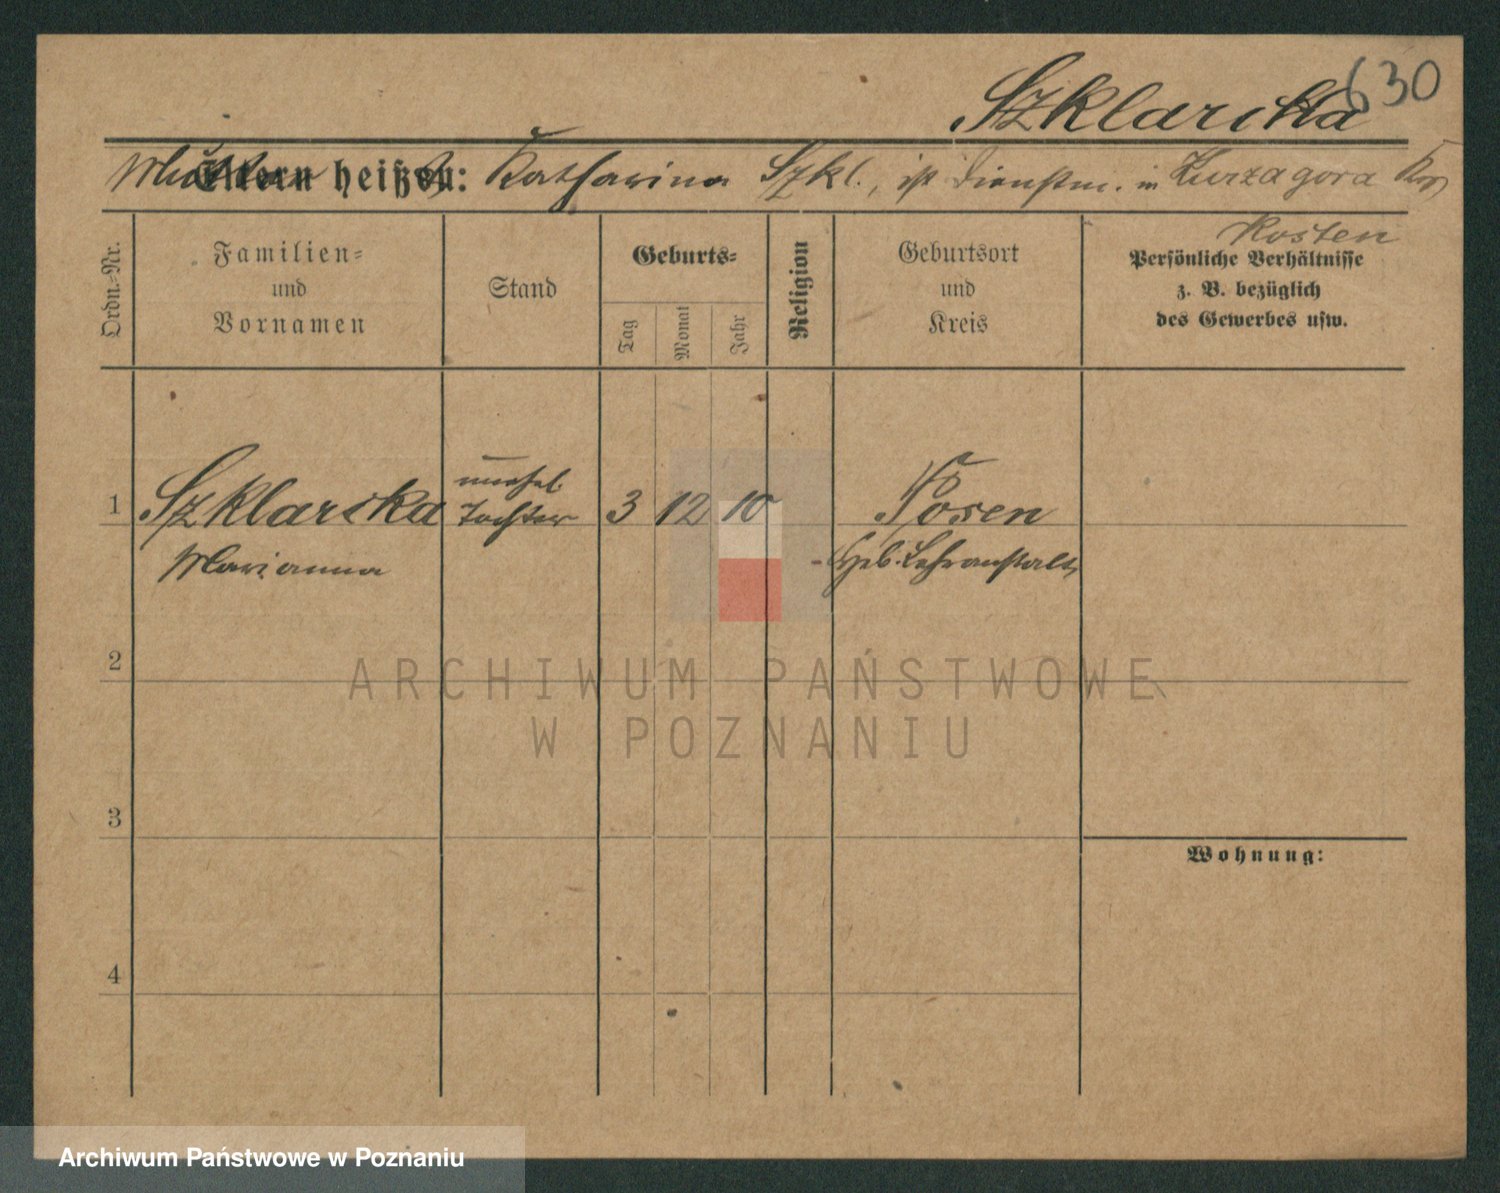 630
Szklarska
Mutter Eltern heißen: Katharina Szkl., ist Dienstm. in Kurzagora Krs
Kosten
Ordn.-Nr.
Familien-
und
Vornamen
Stand
Geburts-
Tag
Monat
Jahr
Religion
Geburtsort
und
Kreis
Persönliche Verhältnisse
z. B. bezüglich
des Gewerbes usw.
1 Szklarska unehel. Tochter 3 12 10 Posen
Marianna Heb. Lehranstalt
2
ARCHIWUM PAŃSTWOWE
W POZNANIU
3
Wohnung:
4
Archiwum Państwowe w Poznaniu